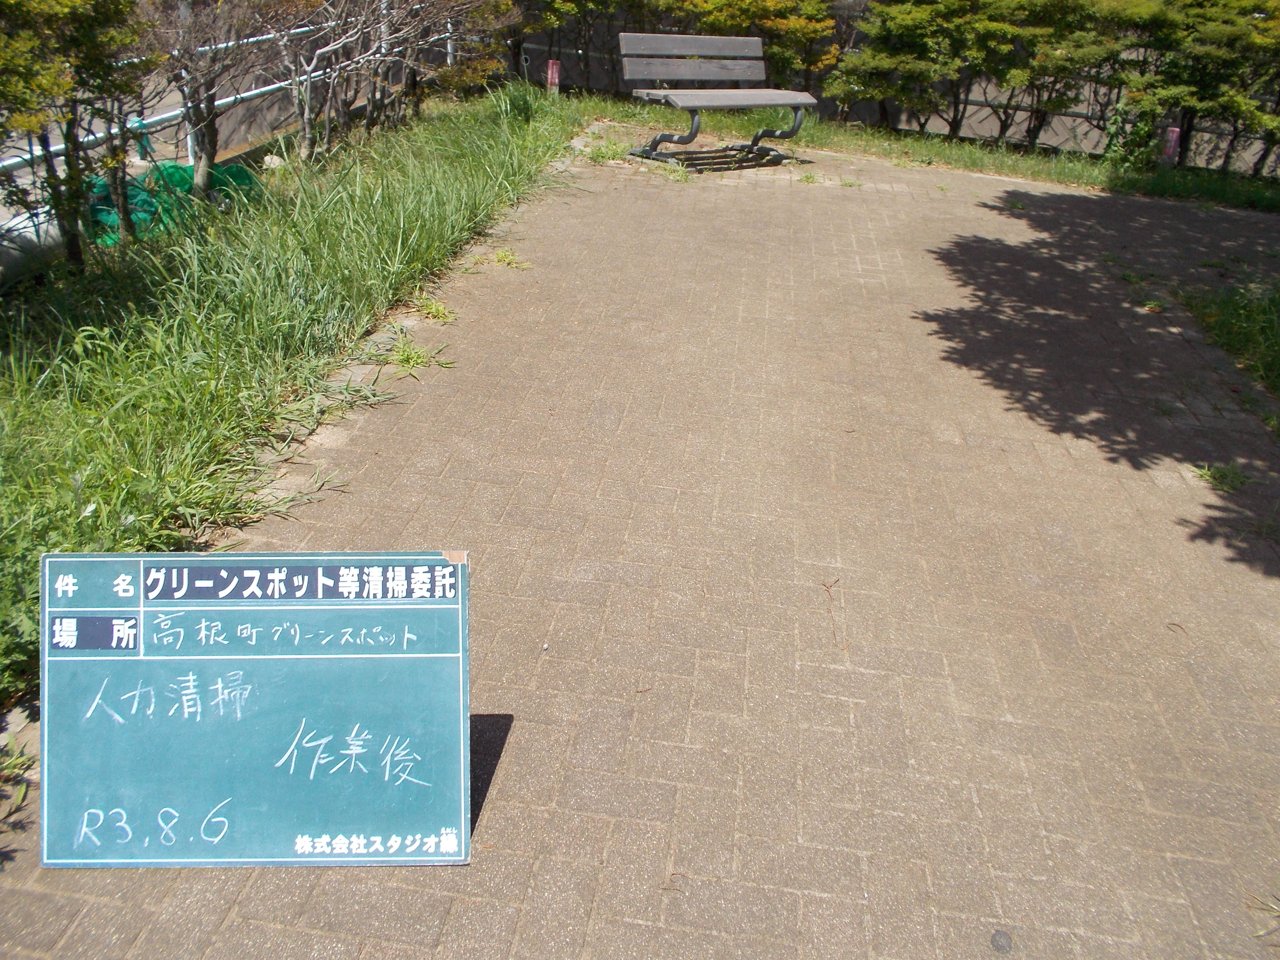 件名 グリーンスポット等清掃委託
場所 高根町グリーンスポット
人力清掃
作業後
R3.8.6
株式会社スタジオ緑